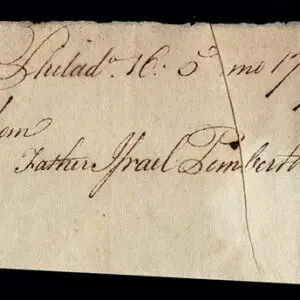 Philada. 16: 5 mo 17
Father Israel Pembert